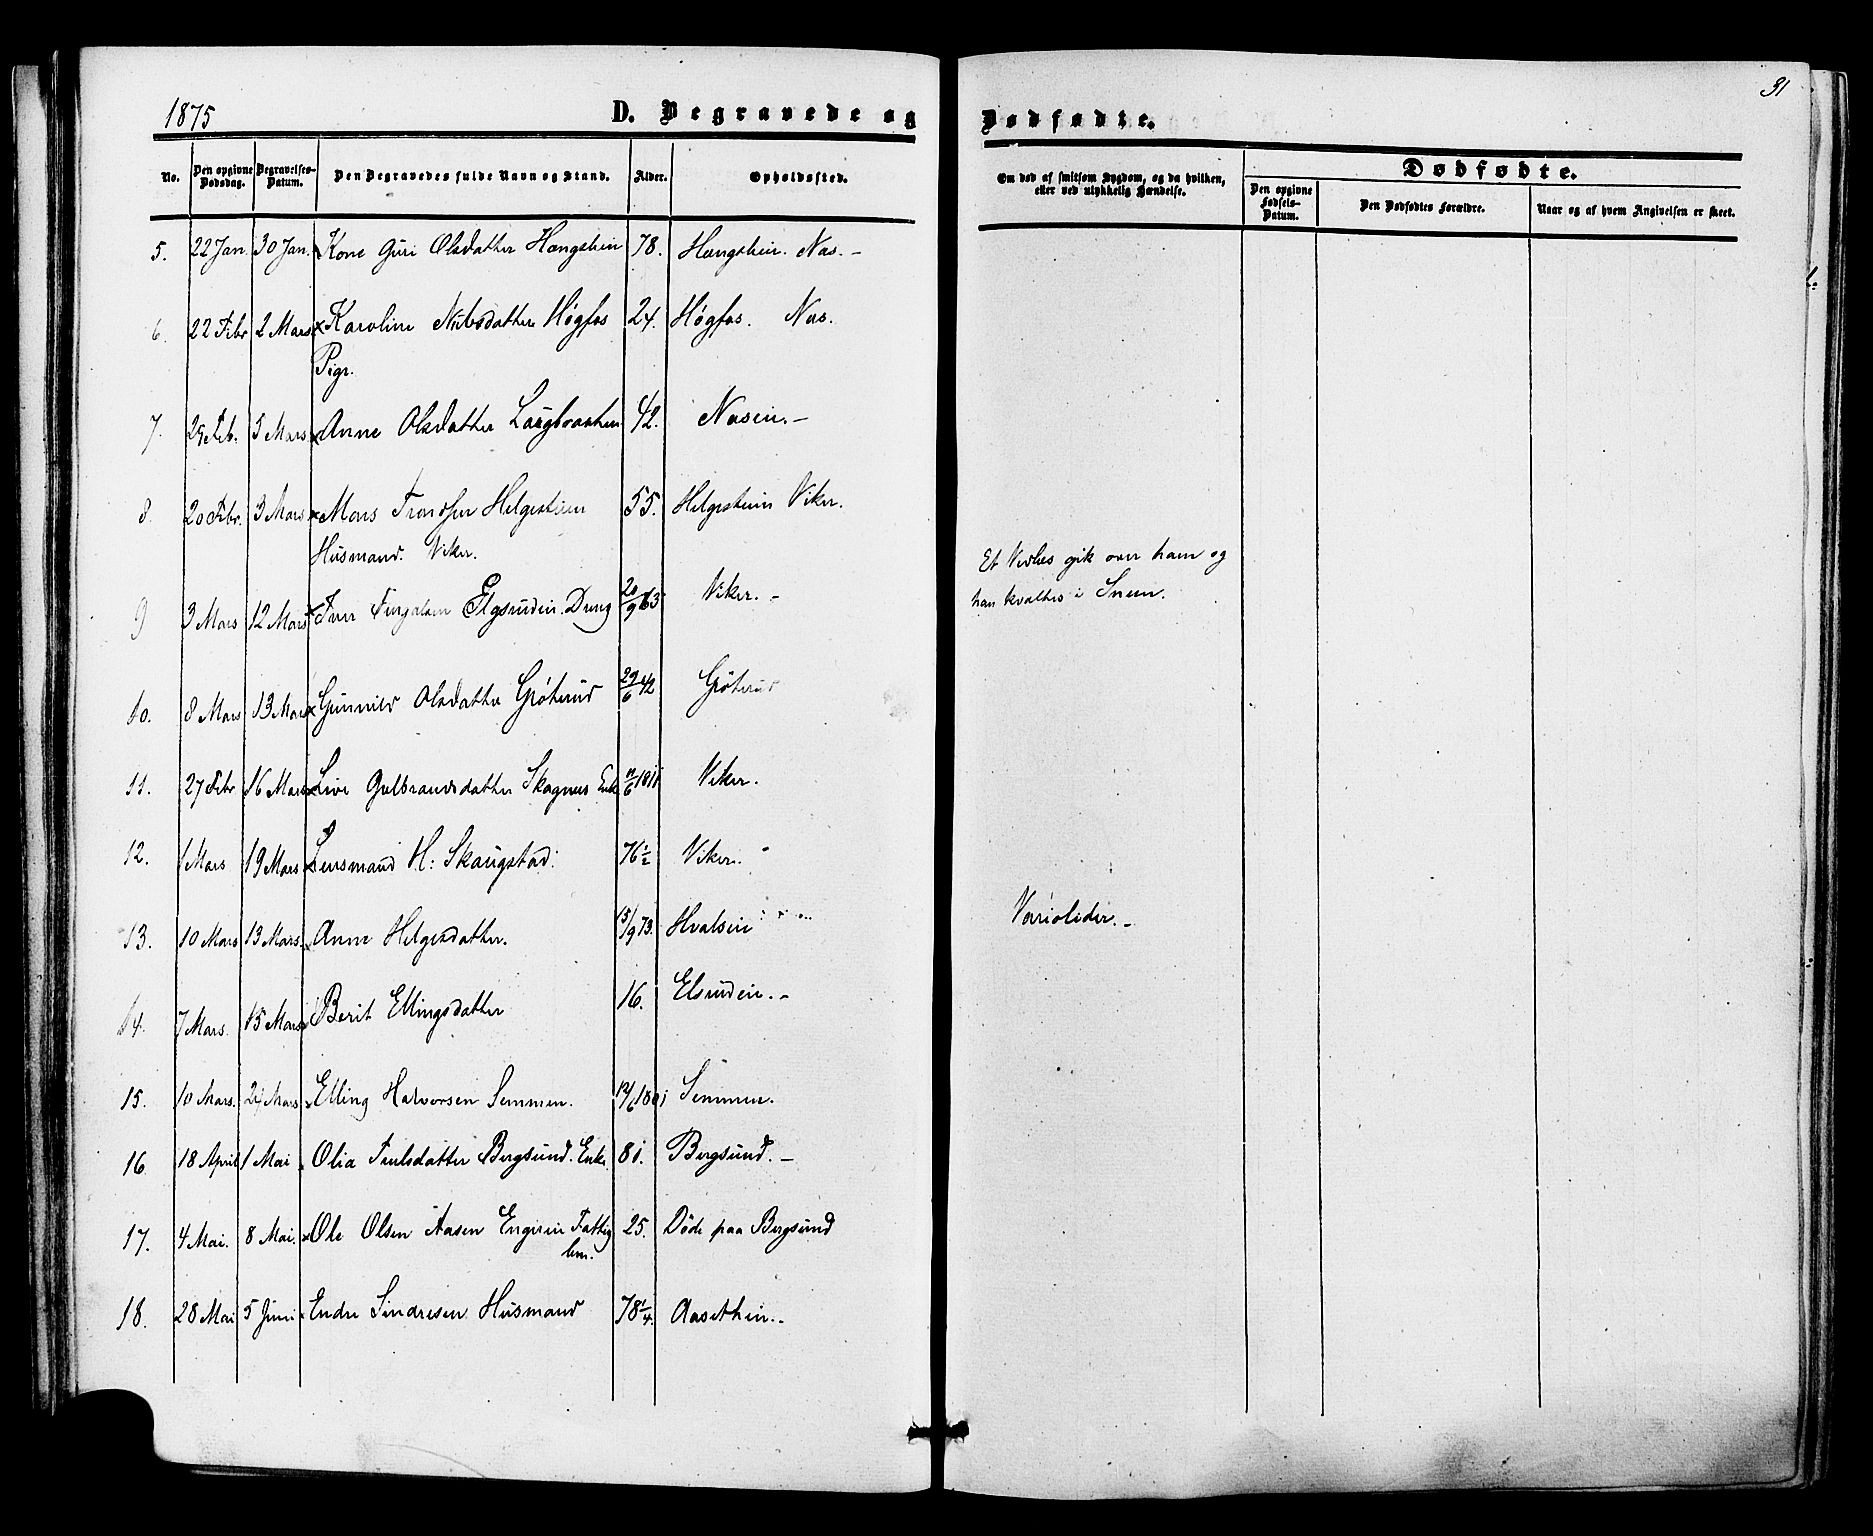 1875
D. Begravede og Dødfødte.
31
No. Den opgivne Dødsdag. Begravelses-Datum. Den Begravedes fulde Navn og Stand. Alder. Opholdssted.
Om død af smitsom Sygdom, og da hvilken, eller ved ulykkelig Hændelse.
Dødfødte.
Den opgivne Fødsels-Datum. Den Dødfødtes Forældre. Naar og af hvem Angivelsen er skeet.
5. 22 Jan. 30 Jan. Kone Guri Olsdatter 78. Nas. -
6. 22 Febr 2 Mars x Karoline Nielsdatter Høgfos 24. Høgfos. Nas.
Pige.
7. Feb. 5 Mars x Anne Olsdatter 42. Nasen. -
8. 20 Febr. 3 Mars x Mons Trondsen Helgesteien 55. Helgesteien Viker.
Husmand. Viker.
9 3 Mars 12 Mars x Iver Elgsruden. Dreng 20/9 63 Viker. -
Et Vedlæs gik over ham og
han kvaltes i Sneen.
10. 8 Mars 13 Mars x Gunnild Olsdatter Grøterud 29/6 42 Grøterud
11. 27 Febr 16 Mars x Live Gulbrandsdatter Skagnes Enke 11/6 1811 Viker.
12. 1 Mars 19 Mars x Lensmand H: Skaugstad. 76 1/2 Viker.
13. 10 Mars 13 Mars. x Anne Helgesdatter. 15/9 73. Hvalsen
Varioloider. -
14. 7 Mars. 15 Mars x Berit Ellingsdatter 16. Elsruden. -
15. 10 Mars. Mars x Elling Halvorsen Semmen. 12/6 1801 Semmen.
16 18 April 1 Mai x Olia Bergsund. Enke. 81. Bergsund. -
17. 4 Mai. 8 Mai. x Ole Olsen Aasen Fattig 25. Døde paa Bergsund
lem.
18. 28 Mai 5 Juni x Endre Sindresen Husmand 78 1/4. Aasethen. -